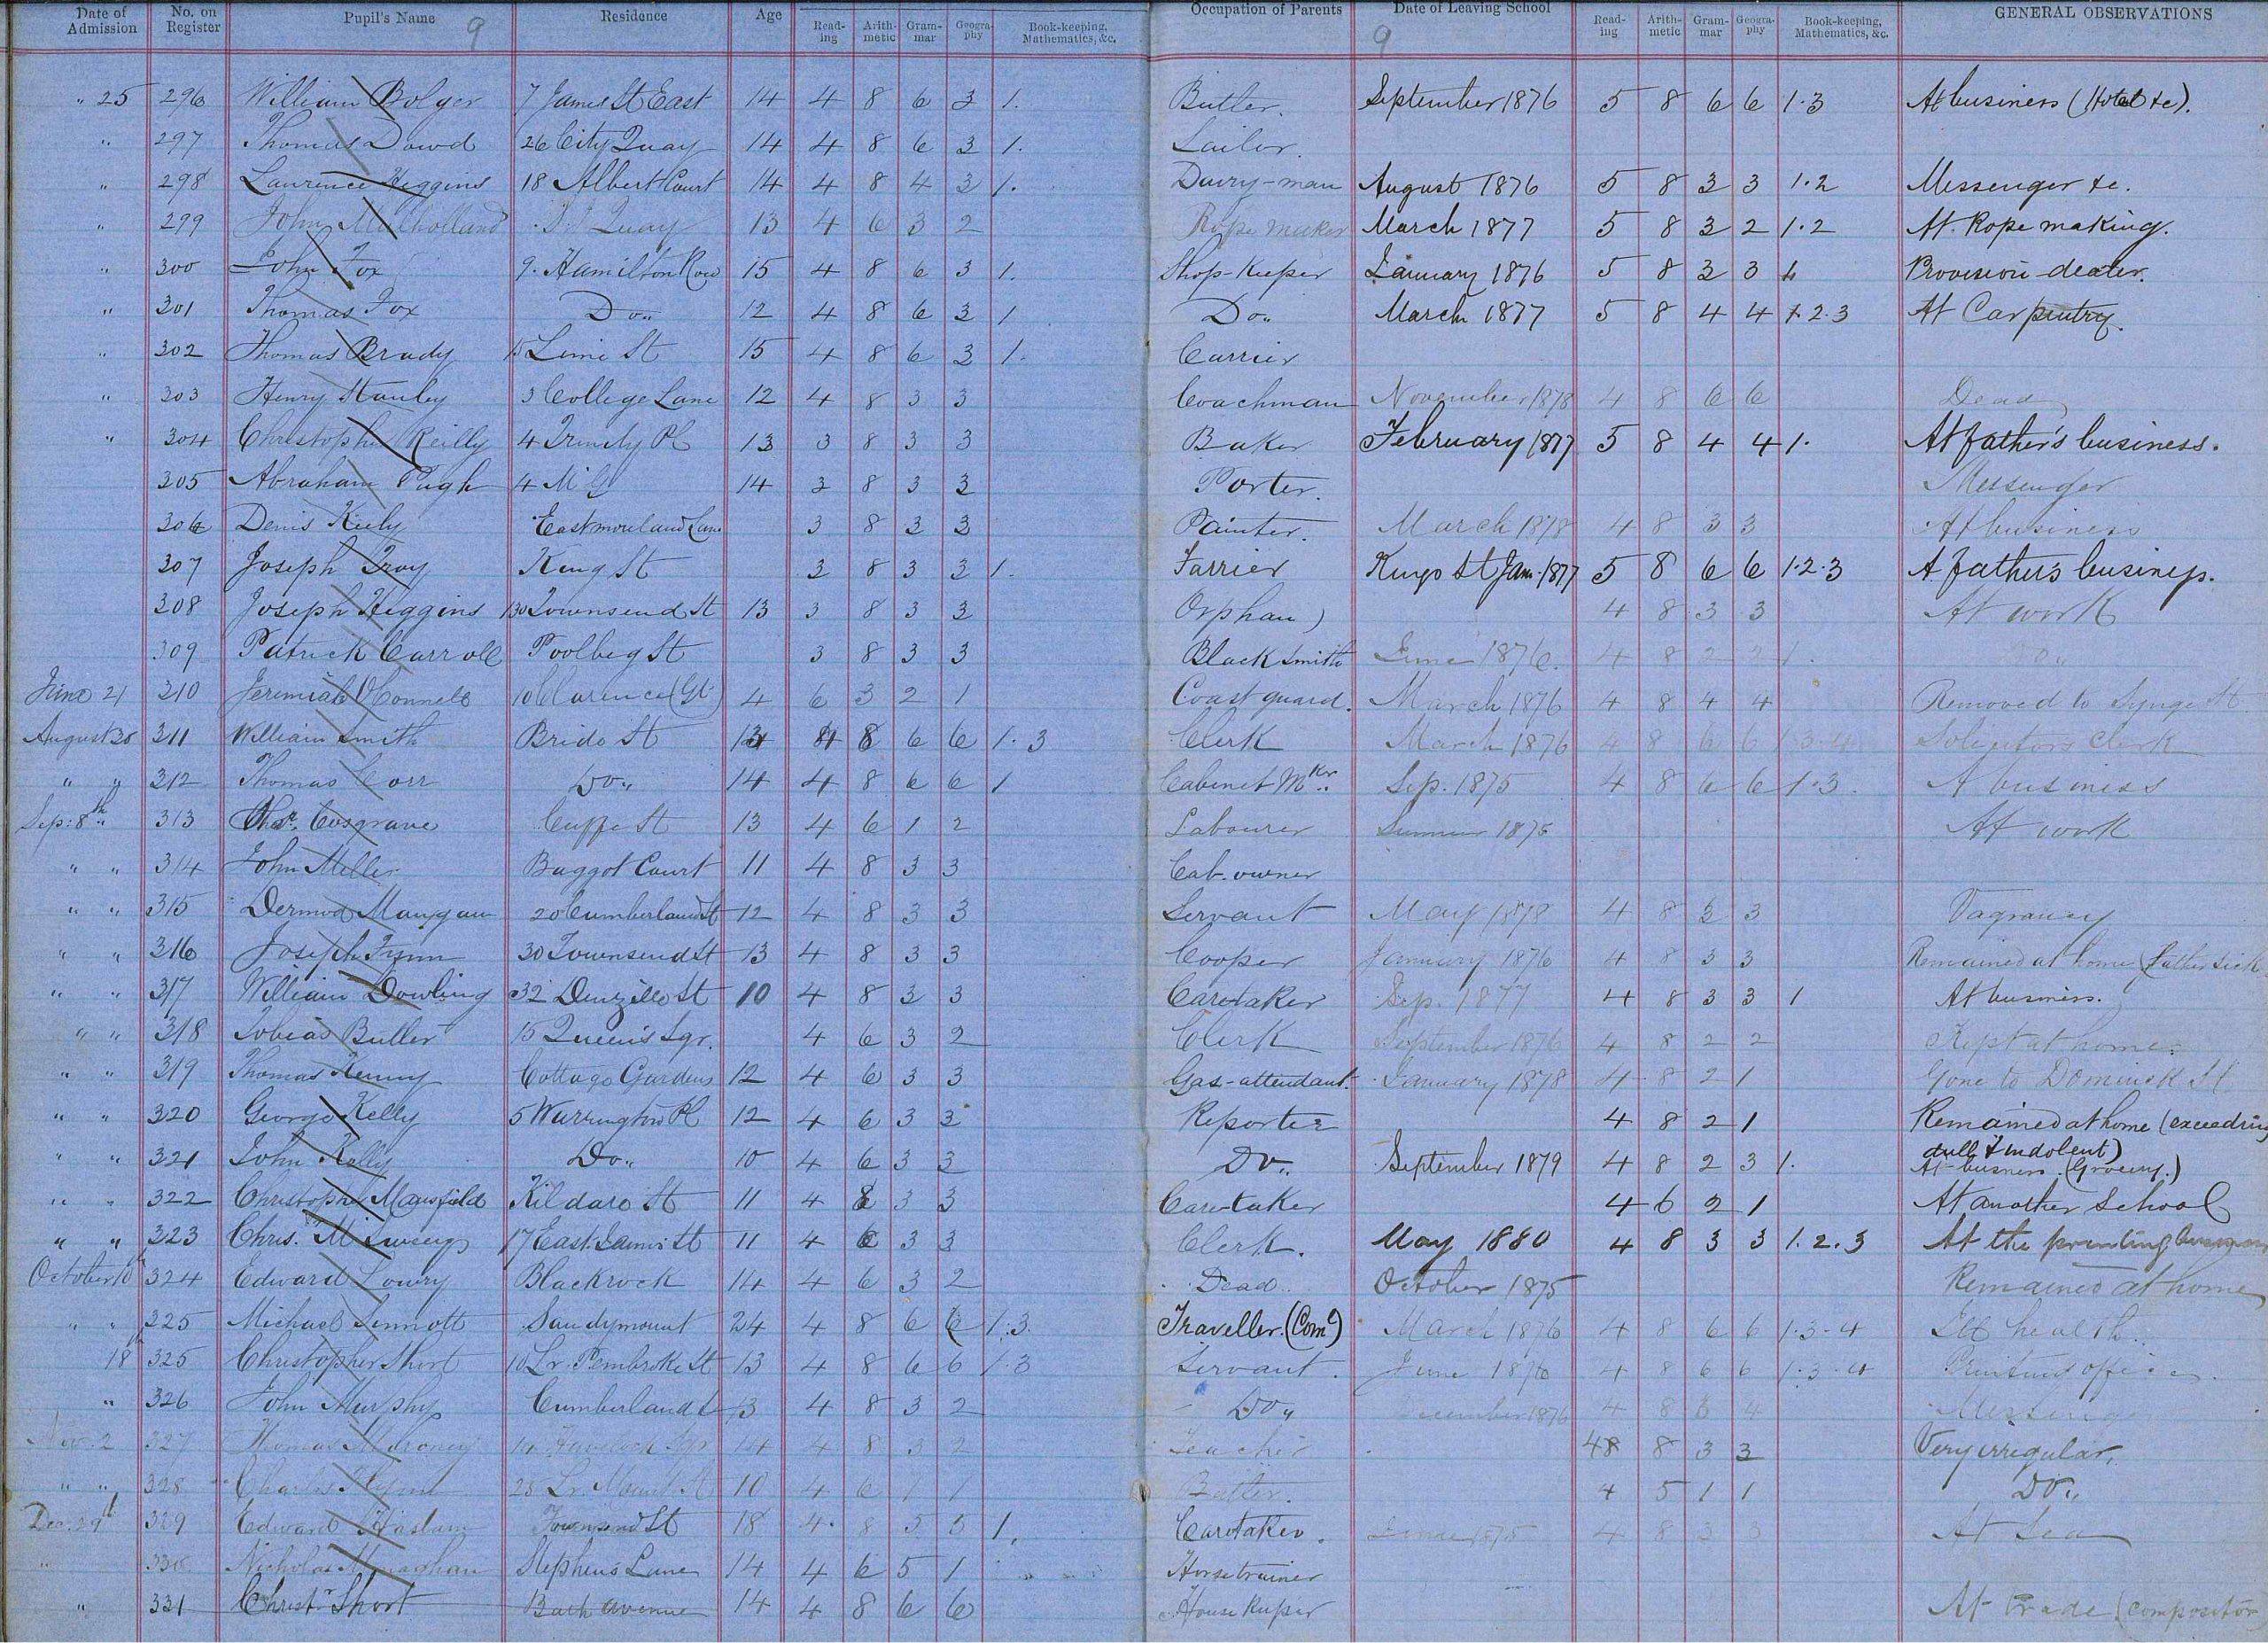 Date of Admission No. on Register Pupil's Name Residence Age Read-ing Arith-metic Gram-mar Geogra-phy Book-keeping, Mathematics, &c. Occupation of Parents Date of Leaving School Read-ing Arith-metic Gram-mar Geogra-phy Book-keeping, Mathematics, &c. GENERAL OBSERVATIONS
9 9
" 25 296 William Bolger 7 James St East 14 4 8 6 3 1. Butler. September 1876 5 8 6 6 1.3 At business (Hotel &c).
" 297 Thomas Dowd 26 City Quay 14 4 8 6 3 1. Sailor.
" 298 Laurence Higgins 18 Albert Court 14 4 8 4 3 1. Dairy-man August 1876 5 8 3 3 1.2 Messenger &c.
" 299 John Mulholland Quay 13 4 6 3 2 Rope maker March 1877 5 8 3 2 1.2 At Rope making.
" 300 John Fox 9. Hamilton Row 15 4 8 6 3 1. Shop-Keeper January 1876 5 8 3 3 Provision-dealer.
" 301 Thomas Fox Do.. 12 4 8 6 3 1 Do.. March 1877 5 8 4 4 1.2.3 At Carpentry.
" 302 Thomas Brady 15 Lime St 15 4 8 6 3 1. Carrier
" 303 Henry Stanley 3 College Lane 12 4 8 3 3 Coachman November 1878 4 8 6 6 Dead
" 304 Christopher Reilly 4 Trinity Pl 13 3 8 3 3 Baker February 1877 5 8 4 4 1. At father's business.
305 Abraham Pugh 4 14 3 8 3 3 Porter. Messenger
306 Denis Kiely Eastmoreland Lane 3 8 3 3 Painter. March 1878 4 8 3 3 At business
307 Joseph Troy King St 3 8 3 3 1. Farrier Kings St Jan. 1877 5 8 6 6 1.2.3 A father's business.
308 Joseph Higgins 130 Townsend St 13 3 8 3 3 Orphan) 4 8 3 3 At work
309 Patrick Carroll Poolbeg St 3 8 3 3 Black smith June 1876. 4 8 2 2 1. Do..
June 21 310 Jeremiah O'Connell 10 Clarence (Gt) 4 6 3 2 1 Coast guard. March 1876 4 8 4 4 Removed to Synge St
August 30 311 William Smith Bride St 8 6 6 1.3 Clerk March 1876 4 8 6 6 1.3.4 Solicitors Clerk
" " 312 Thomas Corr Do.. 14 4 8 6 6 1 Cabinet Mkr.. Sep. 1875 4 8 6 6 1.3. A business
Sep: 8th.. 313 Cosgrave Cuffe St 13 4 6 1 2 Labourer Summer 1875 At work
" " 314 John Miller Baggot Court 11 4 8 3 3 Cab-owner
" " 315 Dermod Mangan 20 Cumberland St 12 4 8 3 3 Servant May 1878 4 8 3 3 Vagrancy
" " 316 Joseph 30 Townsend St 13 4 8 3 3 Cooper January 1876 4 8 3 3 Remained at home (father sick
" " 317 William Dowling 32 Denzille St 10 4 8 3 3 Caretaker Sep. 1877 4 8 3 3 1 At business.
" " 318 Tobias Butler 15 Queen's Sqr. 4 6 3 2 Clerk September 1876 4 8 2 2 Kept at home.
" " 319 Thomas Kenny Cottage Gardens 12 4 6 3 3 Gas-attendant. January 1878 4 8 2 1 Gone to Dominick St
" " 320 George Kelly 5 Warrington Pl 12 4 6 3 3 Reporter 4 8 2 1 Remained at home (exceeding
dull & indolent)
" " 321 John Kelly Do.. 10 4 6 3 3 Do.. September 1879 4 8 2 3 1. At business (Grocery.)
" " 322 Christopher Mansfield Kildare St 11 4 8 3 3 Caretaker 4 6 2 1 At another School
" " 323 Chris. McSweeny 17 East James St 11 4 6 3 3 Clerk. May 1880 4 8 3 3 1.2.3 At the printing business
October 10 324 Edward Lowry Blackrock 14 4 6 3 2 Dead. October 1875 Remained at home
" " 325 Michael Sinnott Sandymount 24 4 8 6 6 1.3. Traveller. (Coml) March 1876 4 8 6 6 1.3.4 Ill health.
18 325 Christopher Short 10 Lr. Pembroke St 13 4 8 6 6 1.3 Servant. June 1876 4 8 6 6 1.3.4 Printing office.
" 326 John Murphy Cumberland St 13 4 8 3 2 Do.. December 1876 4 8 3 4 Messenger
Nov. 2 327 Thomas Havelock Sqr 14 4 8 3 2 Teacher 48 8 3 3 Very irregular.
" " 328 Charles 25 Lr. Mount St 10 4 6 1 1 Butler. 4 5 1 1 Do..
Dec. 29th 329 Edward Haslam Townsend St 18 4. 8 5 5 1. Caretaker. June 1875 4 8 3 3 At Sea
" 330 Nicholas Monaghan Stephens Lane 14 4 6 5 1 Horse trainer
" 331 Christr Short Bath avenue 14 4 8 6 6 House Keeper At trade (compositor